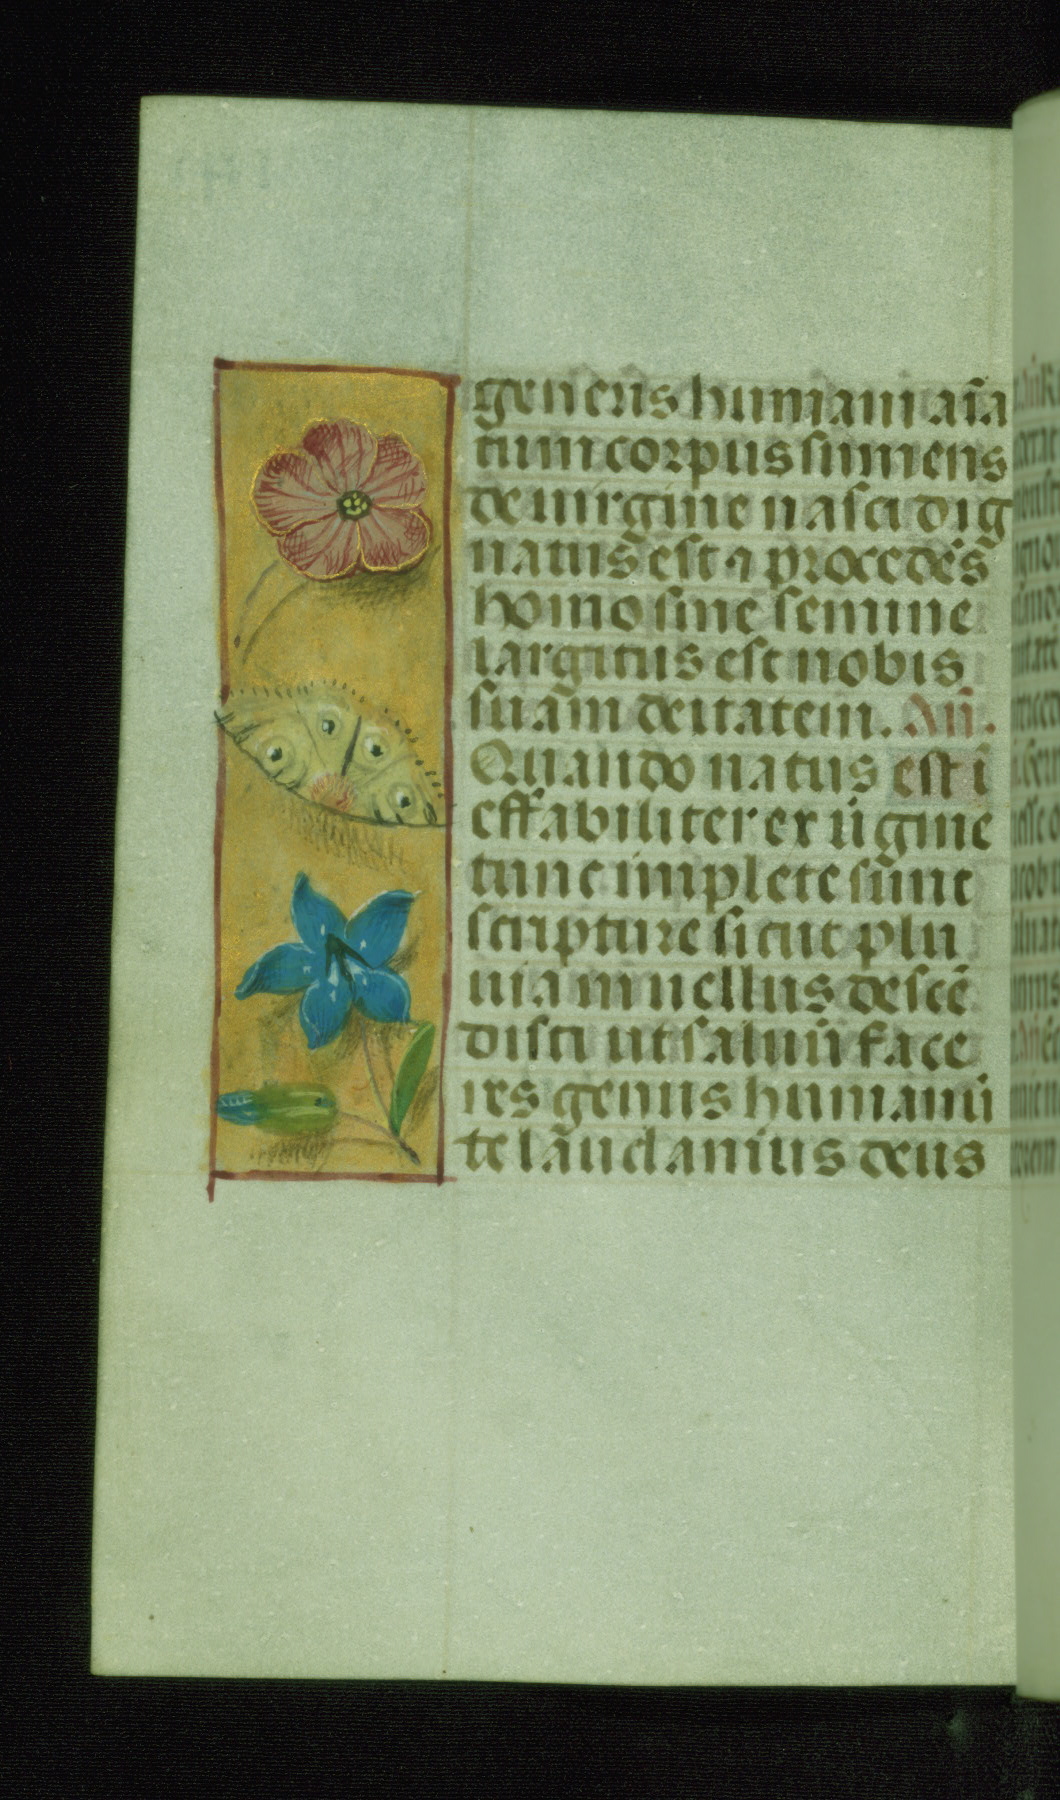 generis humani aīa
tum corpus sumens
de uirgine nasci dig
natus est ⁊ procedēs
homo sine semine
largitus est nobis
suam deitatem. An̄.
Quando natus est ī
effabiliter ex ūgine
tunc implete sunt
scripture sicut plu
uia in uellus descē
disti ut saluū face
res genus humanū
te laudamus deus